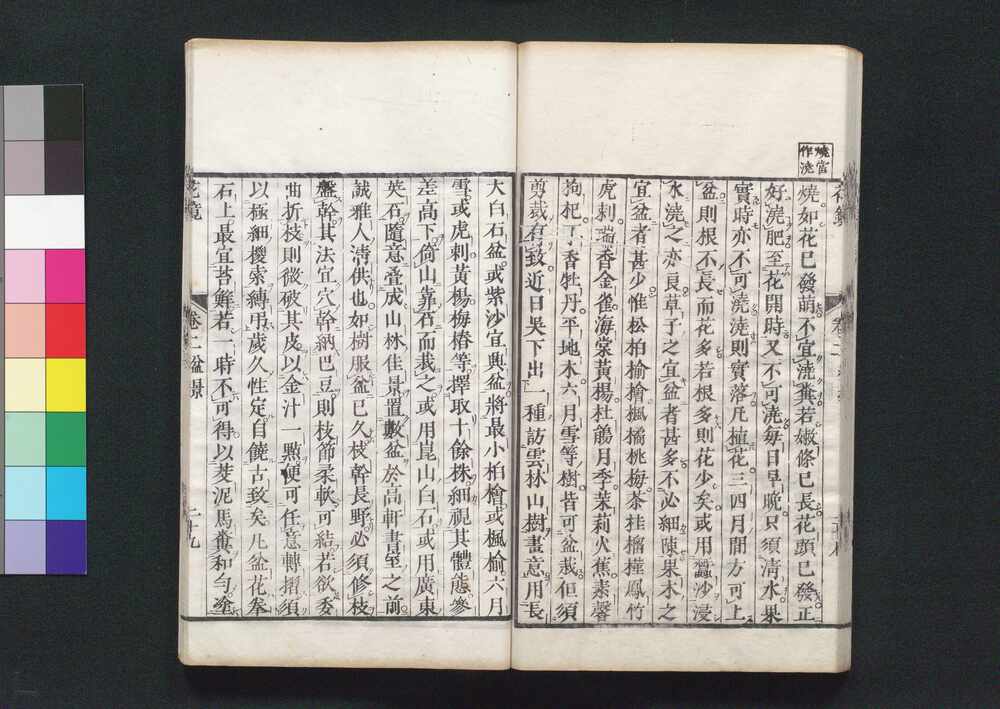 燒當
作澆
燒如花已發萌不宜澆糞若嫩條已長花頭已發正
好澆肥至花開時又不可澆每日早晩只須清水果
實時亦不可澆澆則實落凡植花三四月間方可上
盆則根不長而花多若根多則花少矣或用蠶沙浸
水澆之亦良草子之宜盆者甚多不必細陳果木之
宜盆者甚少惟松柏榆檜楓橘桃梅茶桂榴槿鳳竹
虎刺瑞香金雀海棠黃楊杜鵑月季茉莉火蕉素馨
拘杞丁香牡丹平地木六月雪等樹皆可盆栽但須
剪裁有致近日吳下出一種訪雲林山樹畫意用長
大白石盆或紫沙宜興盆將最小柏檜或楓榆六月
雪或虎刺黃楊梅樁等擇取十餘株細視其體態參
差高下倚山靠石而栽之或用崑山白石或用廣東
英石隨意疊成山林佳景置數盆於高軒書室之前
誠雅人清供也如樹服盆已久枝幹長野必須修枝
盤幹其法宜穴幹納巴豆則枝節柔軟可結若欲委
曲折枝則微破其皮以金汁一點便可任意轉摺須
以極細椶索縛吊歲久性定自饒古致矣凡盆花拳
石上最宜苔蘚若一時不可得以茭泥馬糞和勻塗
花鏡 卷二盆景 二十九